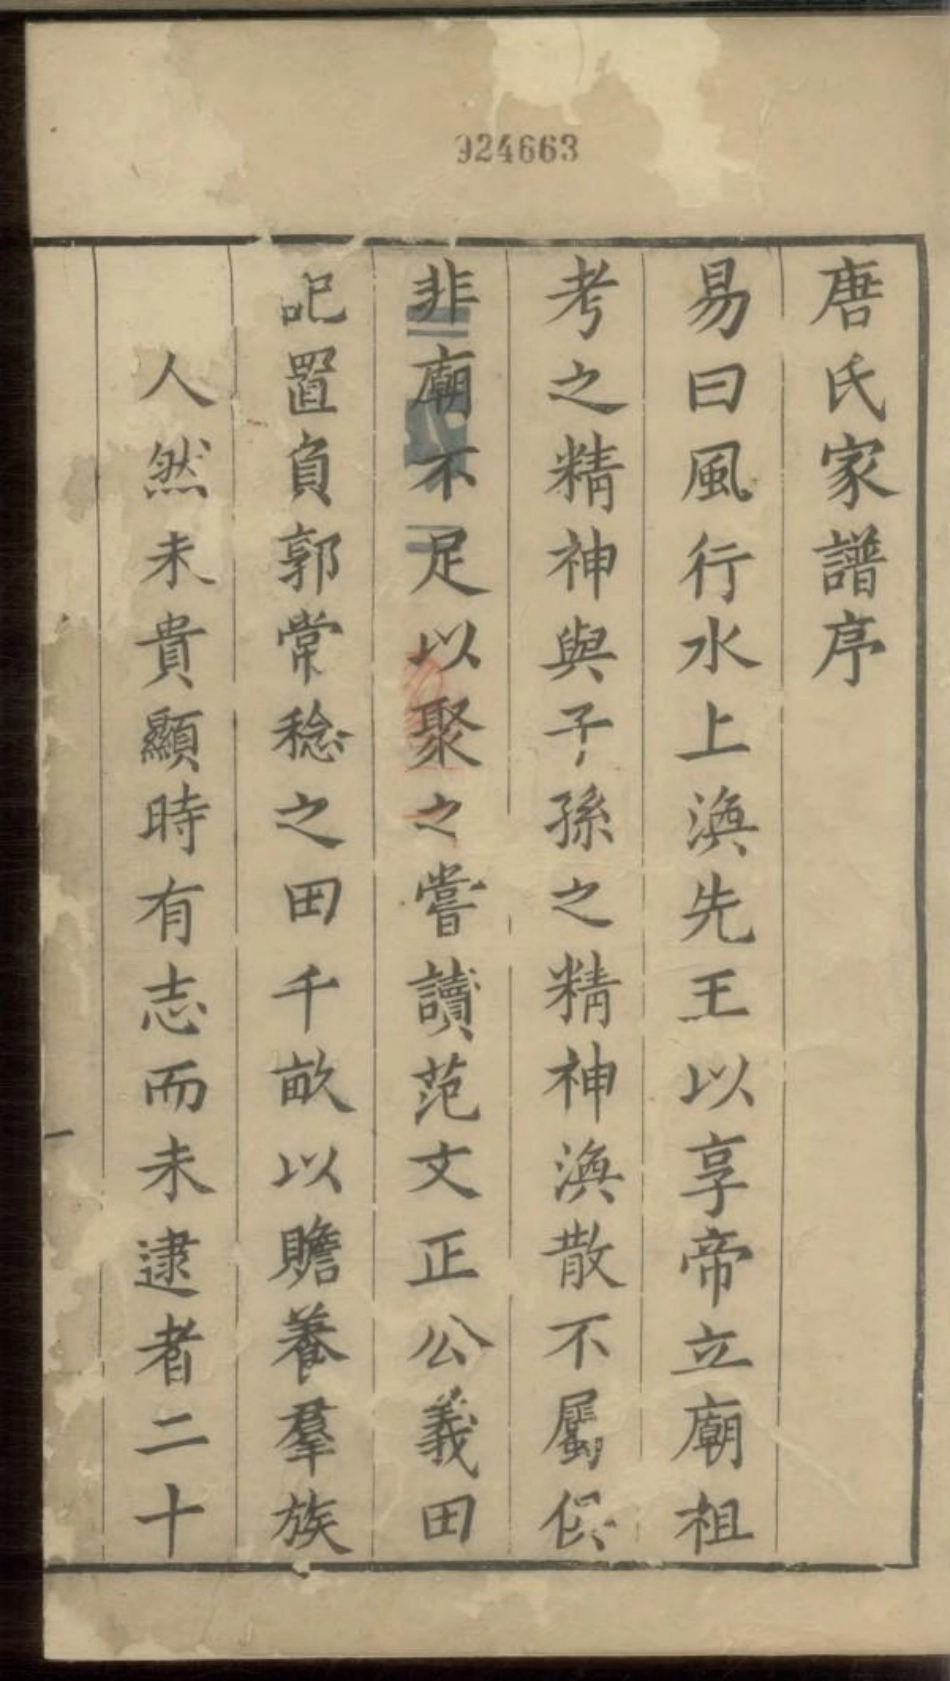 924663
唐氏家譜序
易曰風行水上渙先王以享帝立廟祖
考之精神與子孫之精神渙散不屬
非廟不足以聚之嘗讀范文正公義田
記置負郭常稔之田千畝以贍養羣族
人然未貴顯時有志而未逮者二十